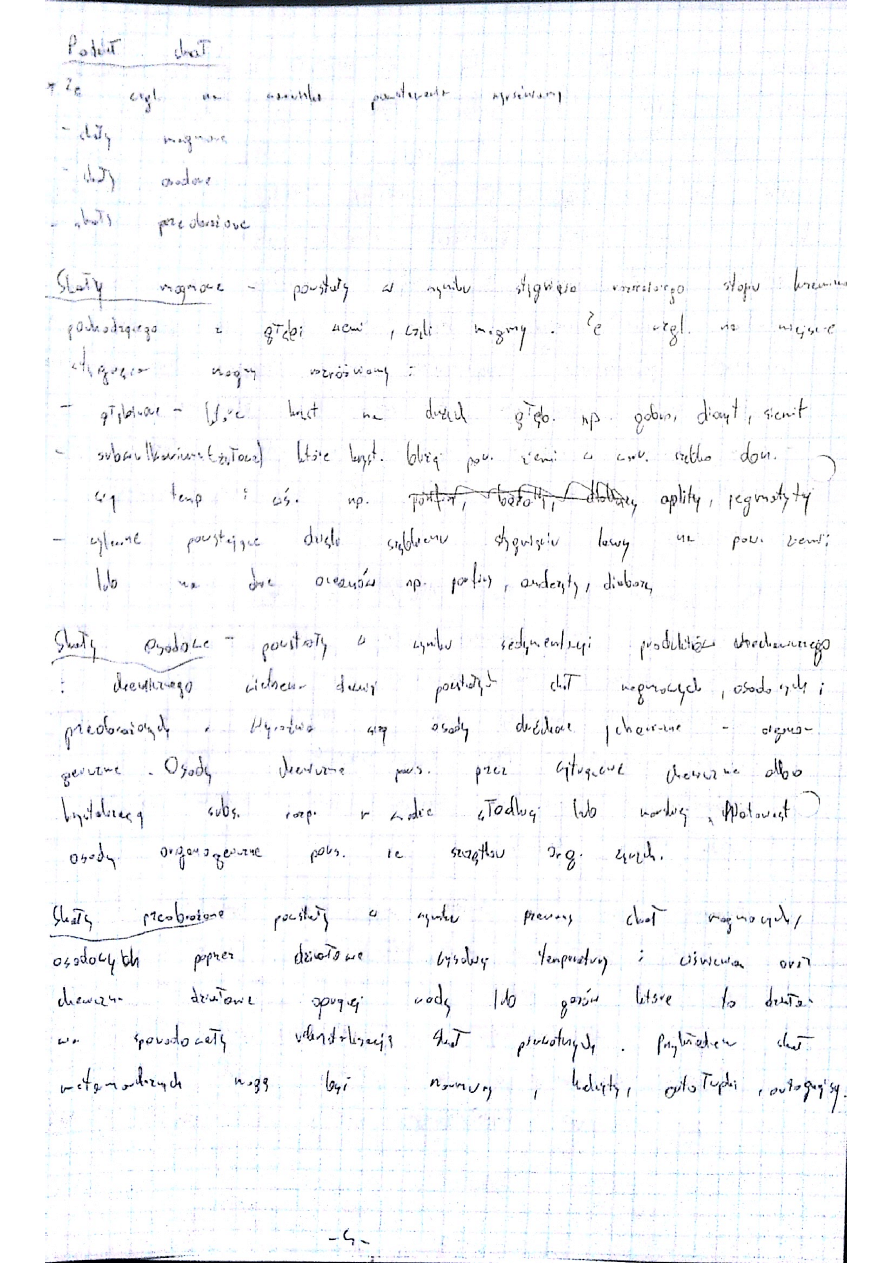 Podział skał
* Ze wzgl. na warunki powstawania wyróżniamy
- skały magmowe
- skały osadowe
- skały przeobrażone
Skały magmowe - powstały w wyniku stygnięcia stopu
pochodzącego z głębi ziemi, czyli magmy. Ze wzgl. na miejsce
stygnięcia magmy rozróżniamy:
- głębinowe - które kryst na dużych głęb. np. gabro, dioryt, sienit
- subwulkaniczne (żyłowe) które kryst. bliżej pow. ziemi w
się temp i ciś. np. aplity, pegmatyty
- wylewne powstające dzięki szybkiemu stygnięciu lawy na pow. ziemi
lub na dnie oceanów np. porfiry, andezyty, diabazy
Skały osadowe - powstały w wyniku sedymentacji produktów mechanicznego
i chemicznego wietrzenia dawniej powstałych skał magmowych, osadowych i
przeobrażonych. Wyróżnia się osady druchowe chemiczne - organo-
geniczne. Osady chemiczne pows. przez wytrącanie chemiczne albo
krystalizację subs. rozp. w wodzie słodkiej lub morskiej. Natomiast
osady organogeniczne pows. ze szczątków org. żywych.
Skały przeobrażone powstały w wyniku przemiany skał magmowych,
osadowych poprzez działanie wysokiej temperatury i ciśnienia oraz
działanie gorącej wody lub gazów które to działa-
nia spowodowały rekrystalizację skał pierwotnych. Przykładem skał
metamorficznych mogą być marmury,
-4-